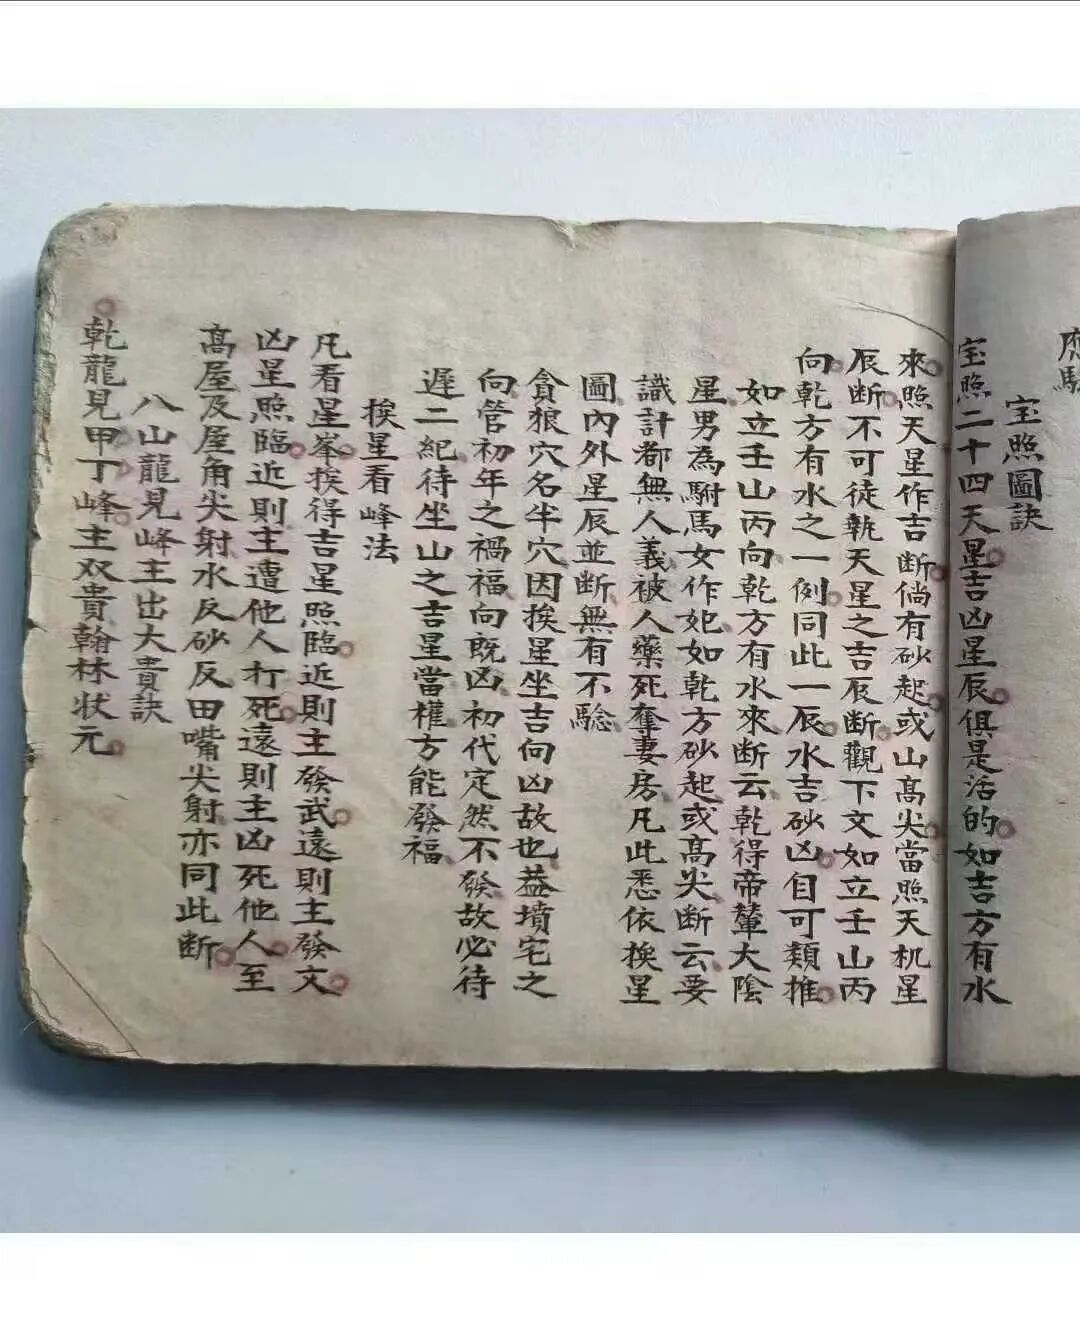 應驗
宝照圖訣
宝照二十四天星吉凶星辰俱是活的如吉方有水
來照天星作吉断倘有砂起或山高尖當照天机星
辰断不可徒執天星之吉辰断觀下文如立壬山丙
向乾方有水之一例同此一辰水吉砂凶自可類推
如立壬山丙向乾方有水來断云乾得帝輦大陰
星男為駙馬女作妃如乾方砂起或高尖断云要
識計都無人義被人藥死奪妻房凡此悉依挨星
圖內外星辰並断無有不騐
貪狼穴名半穴因挨星坐吉向凶故也葢墳宅之
向管初年之禍福向既凶初代定然不發故必待
遲二紀待坐山之吉星當權方能發福
挨星看峰法
凡看星峯挨得吉星照臨近則主發武遠則主發文
凶星照臨近則主遭他人打死遠則主凶死他人至
高屋及屋角尖射水反砂反田嘴尖射亦同此断
八山龍見峰主出大貴訣
乾龍見甲丁峰主双貴翰林状元